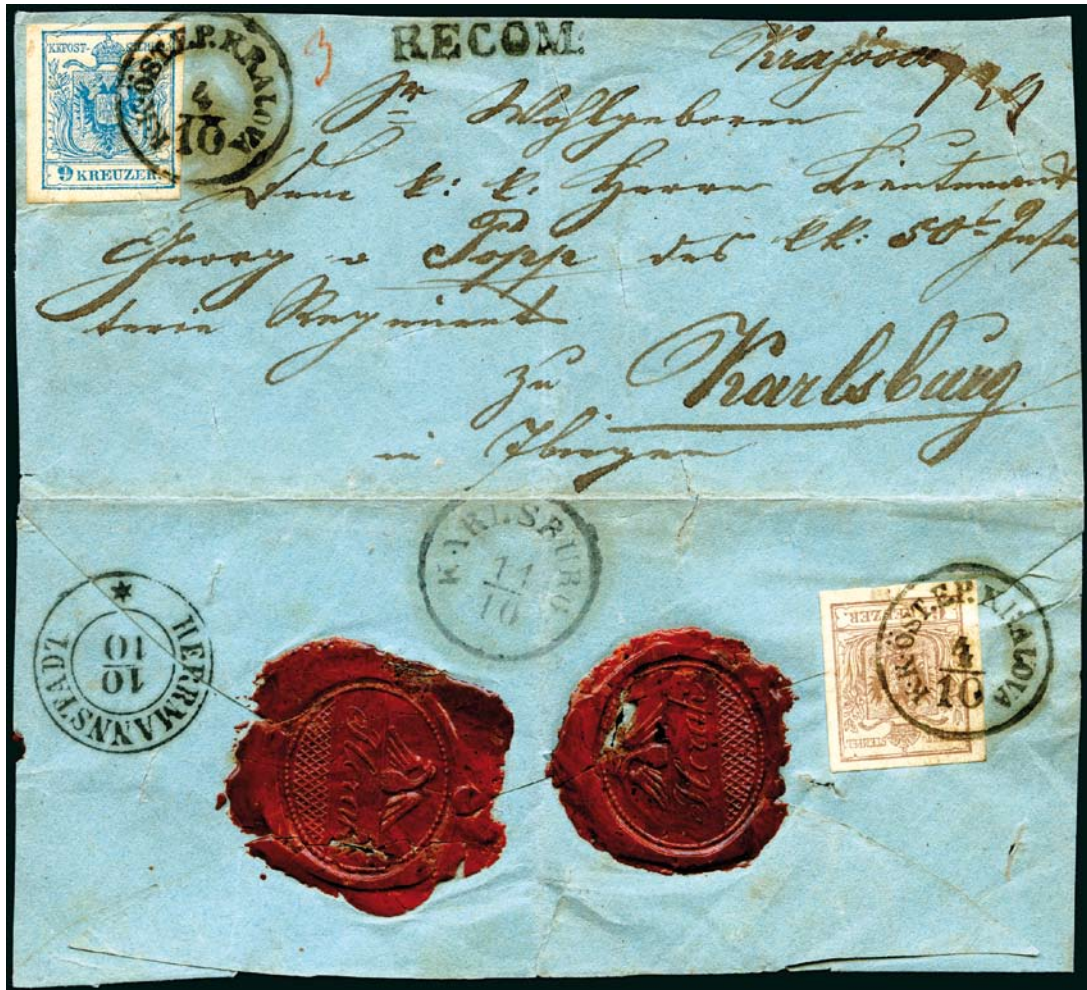 KKPOST-STEMPEL
9 KREUZER
K.K.ÖST.E.P. KRALOVA
4
10
3
RECOM.
Krajova
Sr Wohlgeboren
Dem k: k: Herrn Lieutenant
Georg v Popp des kk: 50t Infan
terie Regiment
zu Karlsburg.
in
KARLSBURG
11
10
HERRMANNSTADT
10
10
6 KREUZER.
STEMPEL
K.K.ÖST.E.P. KRALOVA
4
10